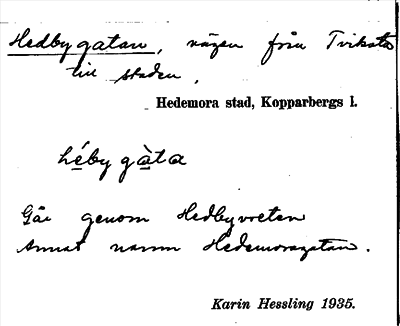 Hedbygatan, vägen från Tviksta
till staden,
Hedemora stad, Kopparbergs l.
héby gàta
Går genom Hedbyvreten
Annat namn Hedemoragatan.
Karin Hessling 1935.